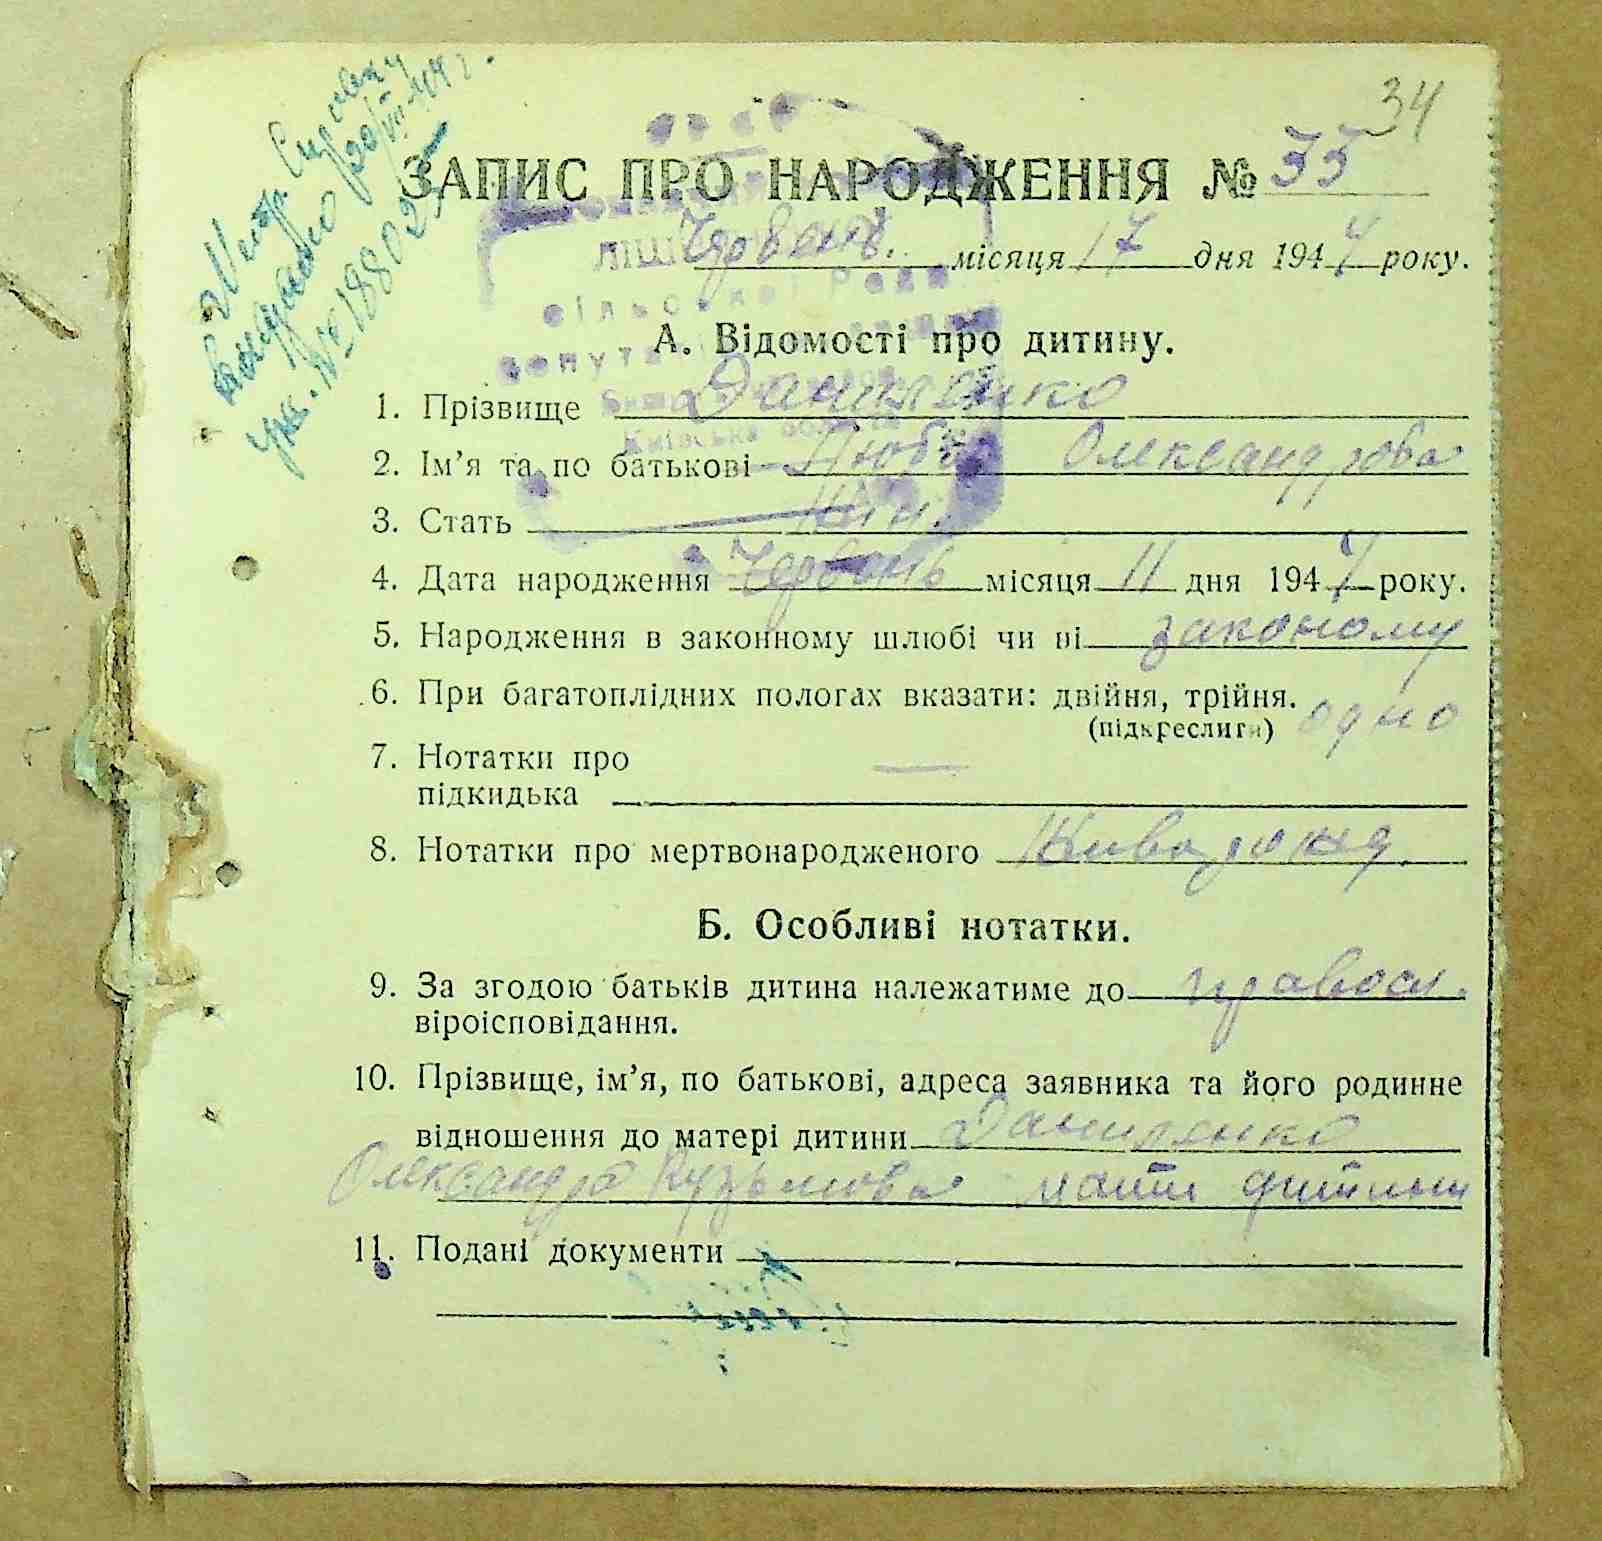 34
ЗАПИС ПРО НАРОДЖЕННЯ № 35
Червень місяця 17 дня 194 року.
А. Відомості про дитину.
1. Прізвище Даниленко
2. Ім'я та по батькові Люба Олександрова
3. Стать жін.
4. Дата народження Червень місяця 11 дня 194 року.
5. Народження в законному шлюбі чи ні законому
6. При багатоплідних пологах вказати: двійня, трійня.
(підкреслити) одно
7. Нотатки про —
підкидька
8. Нотатки про мертвонародженого
Б. Особливі нотатки.
9. За згодою батьків дитина належатиме до правосл.
віроісповідання.
10. Прізвище, ім'я, по батькові, адреса заявника та його родинне
відношення до матері дитини Даниленко
Олександра Кузьмова мати дитини
11. Подані документи
№ 188027
сільської Ради
Київська